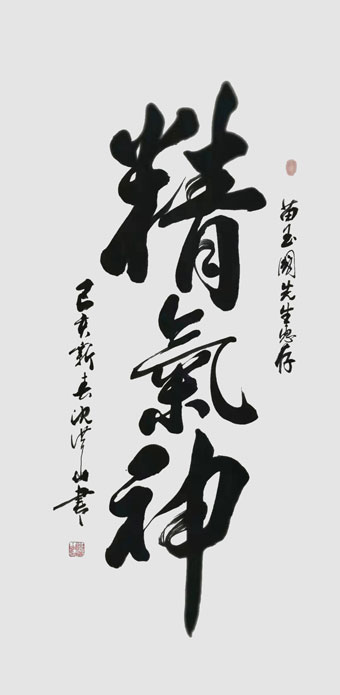 苗玉國先生惠存
精氣神
己亥新春沈山書